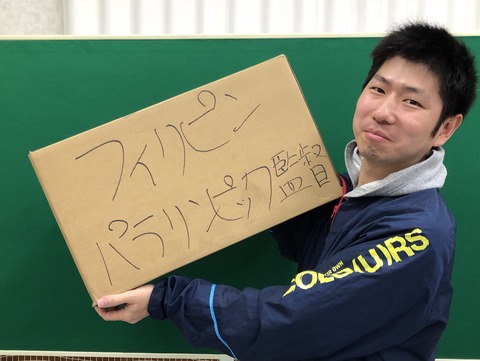 フィリピン
パラリンピック監督